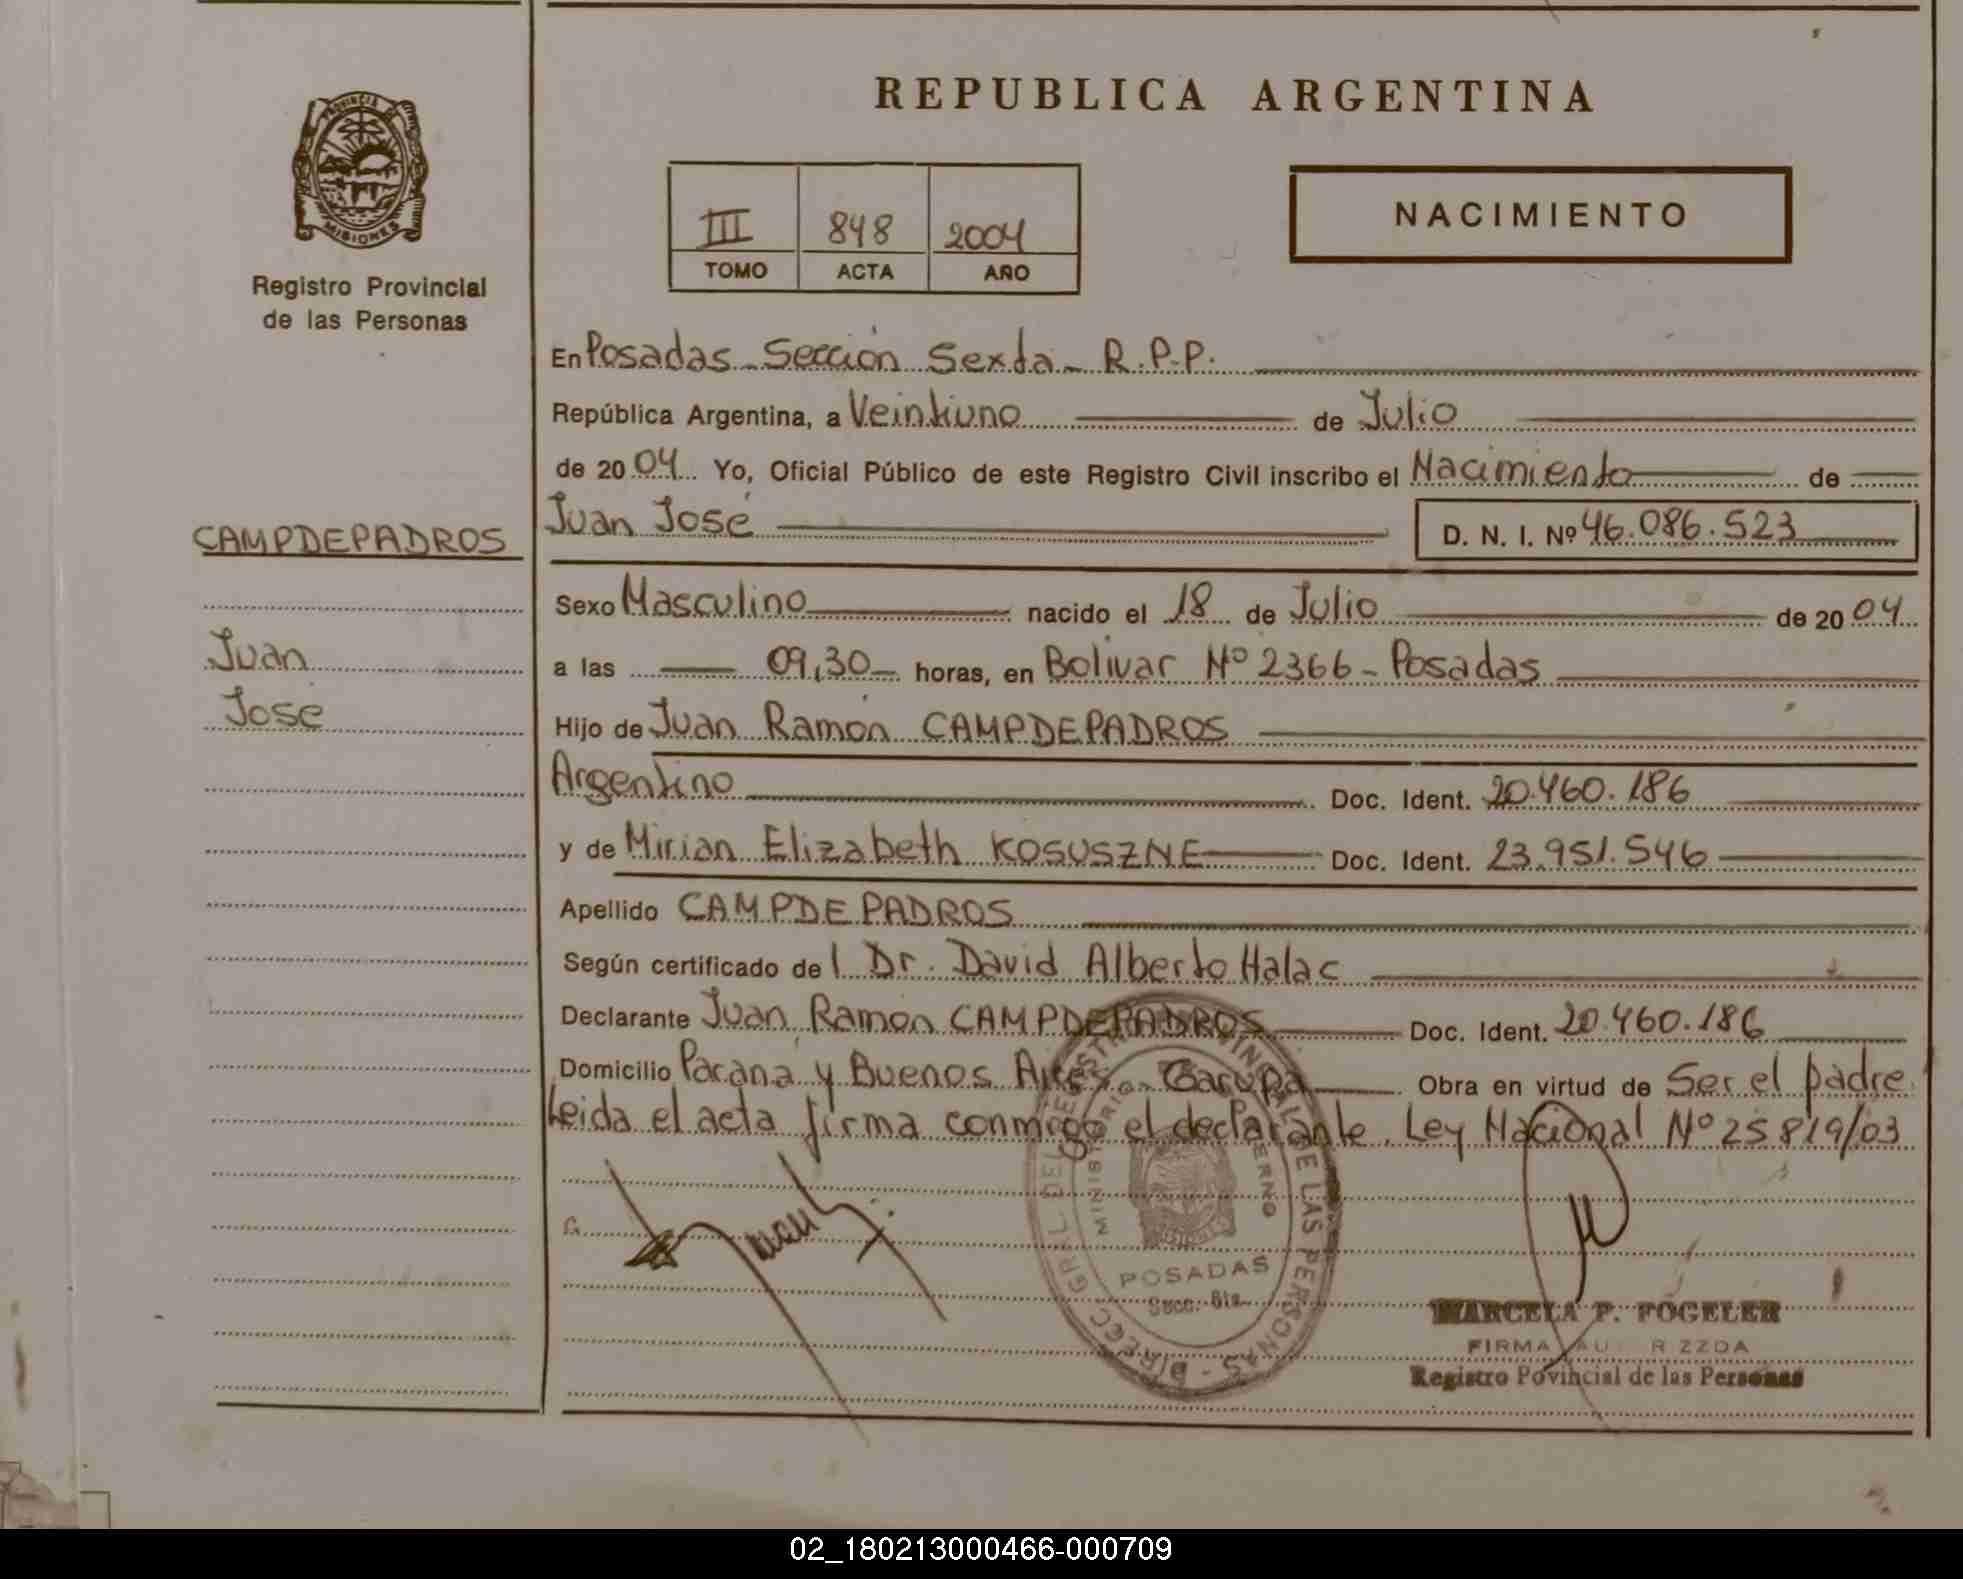 REPUBLICA ARGENTINA
PROVINCIA DE
MISIONES
Registro Provincial
de las Personas
III 848 2004
TOMO ACTA AÑO
NACIMIENTO
En Posadas - Sección Sexta - R.P.P.
República Argentina, a Veintiuno de Julio
de 2004. Yo, Oficial Público de este Registro Civil inscribo el Nacimiento de
CAMPDEPADROS
Juan José D. N. I. Nº 46.086.523
Sexo Masculino nacido el 18 de Julio de 2004
Juan
a las 09,30 horas, en Bolivar Nº 2366 - Posadas
José
Hijo de Juan Ramón CAMPDEPADROS
Argentino Doc. Ident. 20.460.186
y de Mirian Elizabeth KOSUSZNE Doc. Ident. 23.951.546
Apellido CAMPDEPADROS
Según certificado del Dr. David Alberto Halac
Declarante Juan Ramón CAMPDEPADROS Doc. Ident. 20.460.186
Domicilio Paraná y Buenos Aires - Garupa Obra en virtud de Ser el padre
Leida el acta firma conmigo el declarante. Ley Nacional Nº 25819/03
DIRECC. GRAL. DEL REGISTRO PROVINCIAL DE LAS PERSONAS
MINISTERIO GOBIERNO
POSADAS
Secc. 6ta.
MARCELA P. FOGELER
FIRMA AU R ZZDA
Registro Povincial de las Personas
02_180213000466-000709